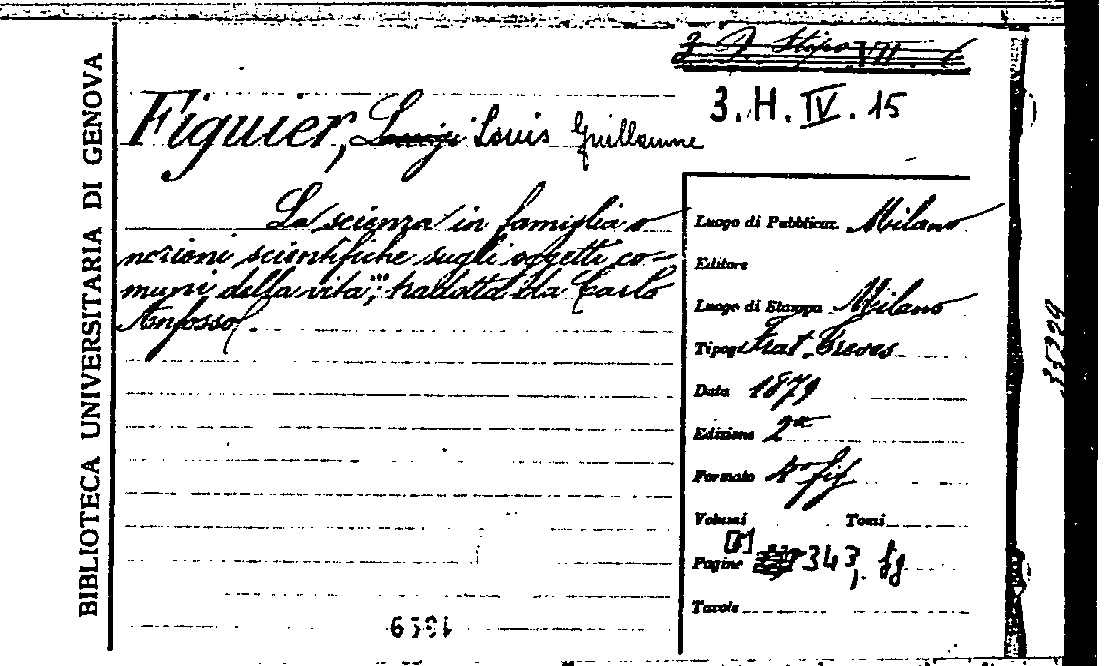 BIBLIOTECA UNIVERSITARIA DI GENOVA
VII
3. H. IV. 15
Figuier, Luigi Louis Guillaume
La scienza in famiglia o
nozioni scientifiche sugli oggetti co-
muni della vita; tradotta da Carlo
Anfosso.
Luogo di Pubblicaz. Milano
Editore
Luogo di Stampa Milano
Tipog. Frat. Treves
Data 1879
Edizione 2a
Formato 4° fig
Volumi Tomi
Pagine 343, fg
Tavole